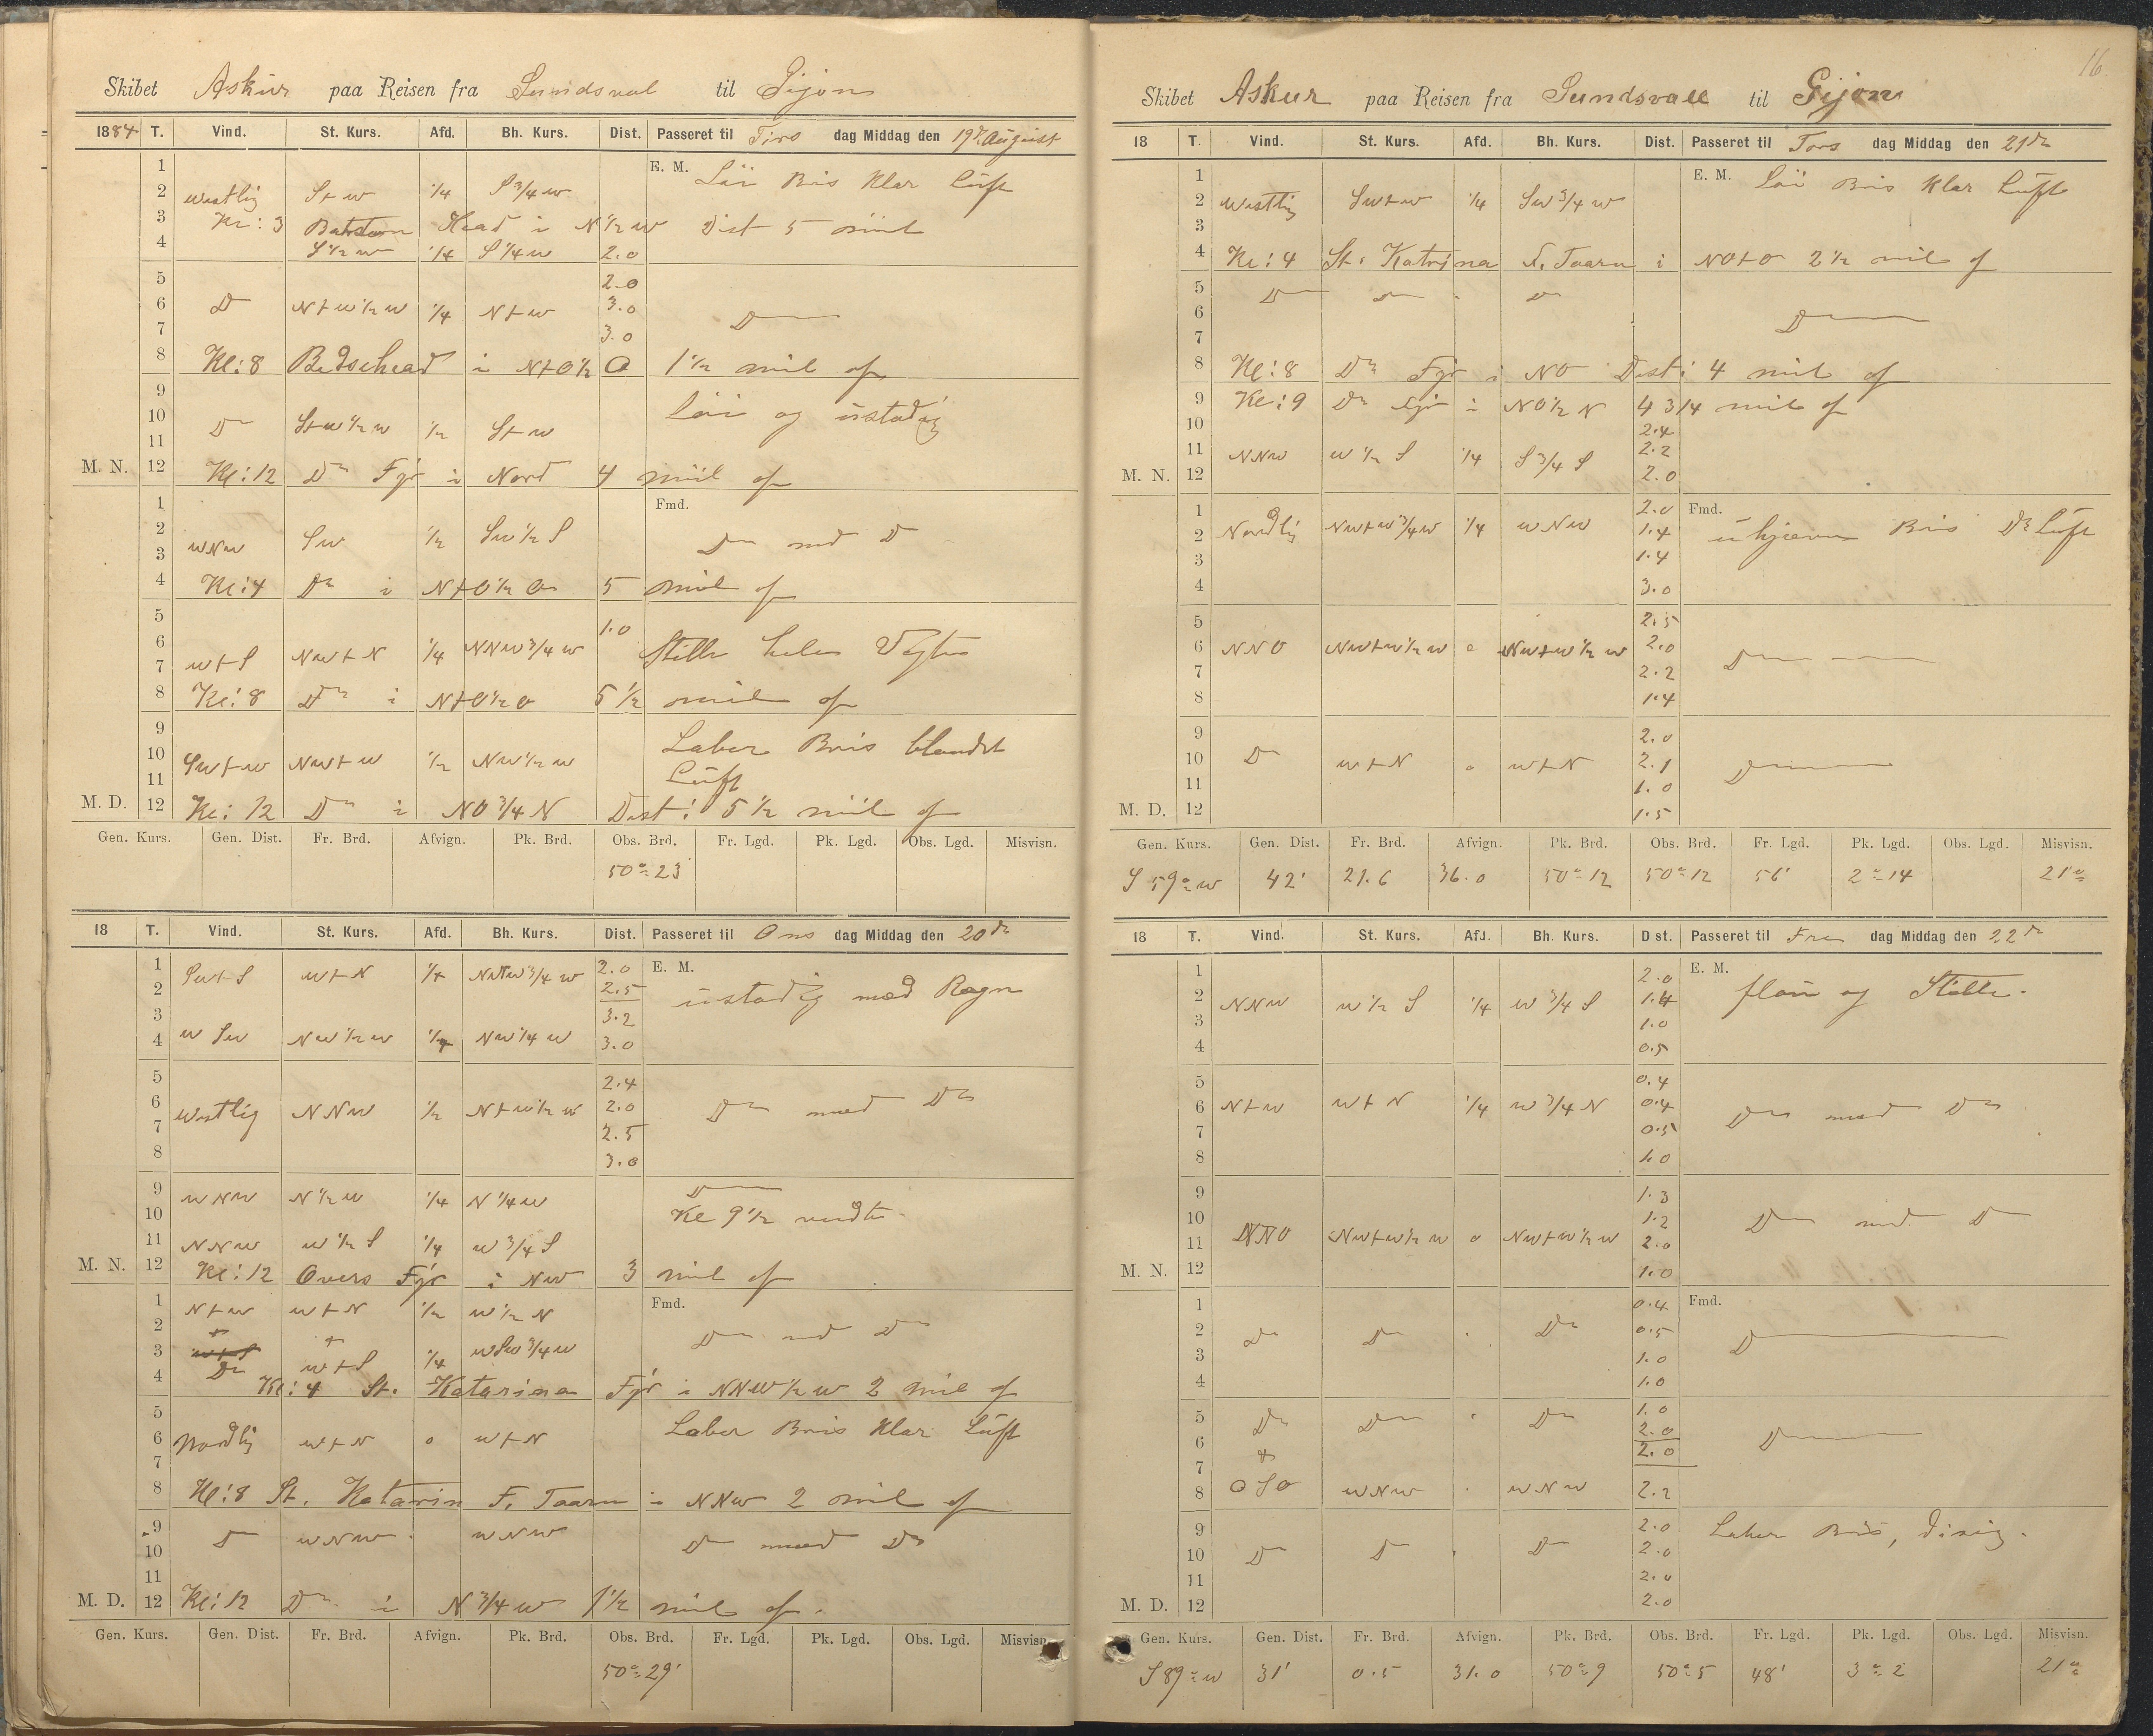 Skibet Askur paa Reisen fra Sundsval til Gijon
1884 T. Vind. St. Kurs. Afd. Bh. Kurs. Dist. Passeret til Tirs dag Middag den 19de August
1 E. M. Löi Bris Klar Lúft
2 Westlig St w 1/4 S 3/4 w
3 Kl: 3 Head i N 1/2 w Dist 5 mil
4 S 1/2 w 1/4 S 1/4 w 2.0
5 2.0
6 D N t w 1/2 w 1/4 N t w 3.0 D
7 3.0
8 Kl: 8 i N t O 1/2 O 1 1/2 mil of
9 Löi og ústadig
10 D St w 1/2 w 1/2 St w
11
M. N. 12 Kl: 12 Do Fyr i Nord 4 mil of
1 Fmd.
2 WNW Sw 1/2 Sw 1/2 S Do med D
3
4 Kl: 4 Do i N t O 1/2 O 5 mil of
5 1.0
6 w t S Nw t N 1/4 NNw 3/4 w Stille hele Vagten
7
8 Kl: 8 Do i N t O 1/2 O 5 1/2 mil of
9 Laber Bris blandet
10 Sw t w Nw t w 1/2 Nw 1/2 w Lúft
11
M. D. 12 Kl: 12 Do i NO 3/4 N Dist: 5 1/2 mil of
Gen. Kurs. Gen. Dist. Fr. Brd. Afvign. Pk. Brd. Obs. Brd. Fr. Lgd. Pk. Lgd. Obs. Lgd. Misvisn.
50° 23
18 T. Vind. St. Kurs. Afd. Bh. Kurs. Dist. Passeret til Ons dag Middag den 20de
1 Sw t S w t N 1/4 3/4 w 2.0 E. M.
2 2.5 ústadig med Regn
3 3.2
4 w Sw Nw 1/2 w 1/4 Nw 1/4 w 3.0
5 2.4
6 Westlig NNw 1/2 N t w 1/2 w 2.0 Do med Do
7 2.5
8 3.0
9 WNW N 1/2 w 1/4 N 1/4 w D
10 Kl 9 1/2 vendte
11 NNw w 1/2 S 1/4 w 3/4 S
M. N. 12 Kl: 12 Overs Fyr i Nw 3 mil of
1 N t w w t N 1/2 w 1/2 N Fmd.
2 Do med Do
3 Do w t S 1/4 w Sw 3/4 w
4 Kl: 4 St. Katarina Fyr i NNW 1/2 w 2 mil of
5 Laber Bris Klar Lúft
6 Nordlig w t N 0 w t N
7
8 Kl: 8 St. Katarin F. Taarn i NNw 2 mil of
9 D wNw wNw Do med Do
10
11
M. D. 12 Kl: 12 Do i N 3/4 w 1 1/2 mil of.
Gen. Kurs. Gen. Dist. Fr. Brd. Afvign. Pk. Brd. Obs. Brd. Fr. Lgd. Pk. Lgd. Obs. Lgd. Misvisn.
50° 29'
16.
Skibet Askur paa Reisen fra Sundsvall til Gijon
18 T. Vind. St. Kurs. Afd. Bh. Kurs. Dist. Passeret til Tors dag Middag den 21de
1 E. M. Löi Bris Klar Lúft
2 Westlig Sw t w 1/4 Sw 3/4 w
3
4 Kl: 4 St. Katrina F. Taarn i NO t O 2 1/2 mil of
5 D D " D
6 D
7
8 Kl: 8 Do Fyr i NO Dist: 4 mil of
9 Kl: 9 Do Fyr i NO 1/2 N 4 3/4 mil of
10 2.4
11 NNw w 1/2 S 1/4 S 3/4 S 2.2
M. N. 12 2.0
1 2.0 Fmd.
2 Nordlig Nw t w 3/4 w 1/4 w Nw 1.4 Bris Do Lúft
3 1.4
4 3.0
5 2.5
6 NNO Nw t w 1/2 w 0 Nw t w 1/2 w 2.0 D
7 2.2
8 1.4
9 2.0
10 D w t N 0 w t N 2.1 D
11 1.0
M. D. 12 1.5
Gen. Kurs. Gen. Dist. Fr. Brd. Afvign. Pk. Brd. Obs. Brd. Fr. Lgd. Pk. Lgd. Obs. Lgd. Misvisn.
S 59° w 42' 21.6 36.0 50° 12 50° 12 56' 2° 14 21°
18 T. Vind. St. Kurs. Afd. Bh. Kurs. Dist. Passeret til Fre dag Middag den 22de
1 2.0 E. M.
2 NNW w 1/2 S 1/4 w 3/4 S 1.4 flau og Stille.
3 1.0
4 0.5
5 0.4
6 N t w w t N 1/4 w 3/4 N 0.4 Do med Do
7 0.5
8 1.0
9 1.3
10 1.2 Do med D
11 NNO Nw t w 1/2 w 0 Nw t w 1/2 w 2.0
M. N. 12 1.0
1 0.4 Fmd.
2 Do Do " Do 0.5 D
3 1.0
4 1.0
5 Do Do " Do 1.0
6 2.0 D
7 2.0
8 OSO wNw " wNw 2.2
9 2.0 Laber Bris, disig.
10 D D " D 2.0
11 2.0
M. D. 12 2.0
Gen. Kurs. Gen. Dist. Fr. Brd. Afvign. Pk. Brd. Obs. Brd. Fr. Lgd. Pk. Lgd. Obs. Lgd. Misvisn.
S 89° w 31' 0.5 31.0 50° 9 50° 5 48' 3° 2 21°